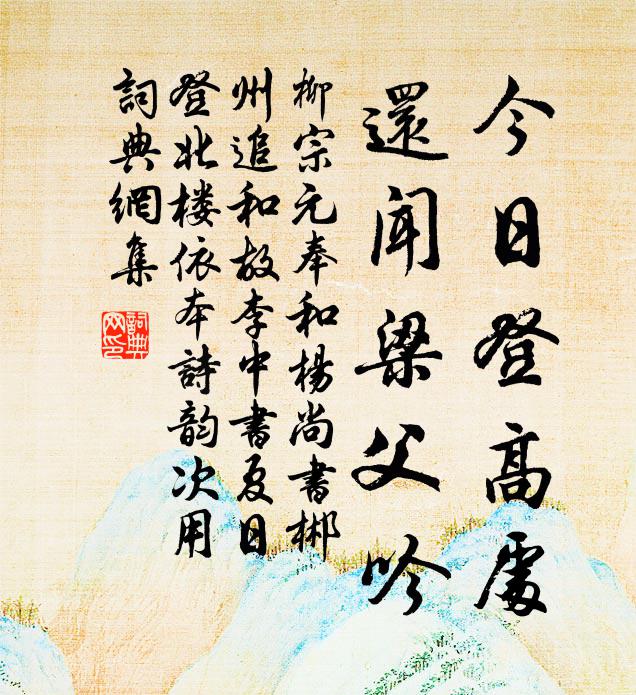 今日登高處
還聞梁父吟
柳宗元奉和楊尚書郴
州追和故李中書夏日
登北楼依本詩韵次用
詞典網集
詞典
网印